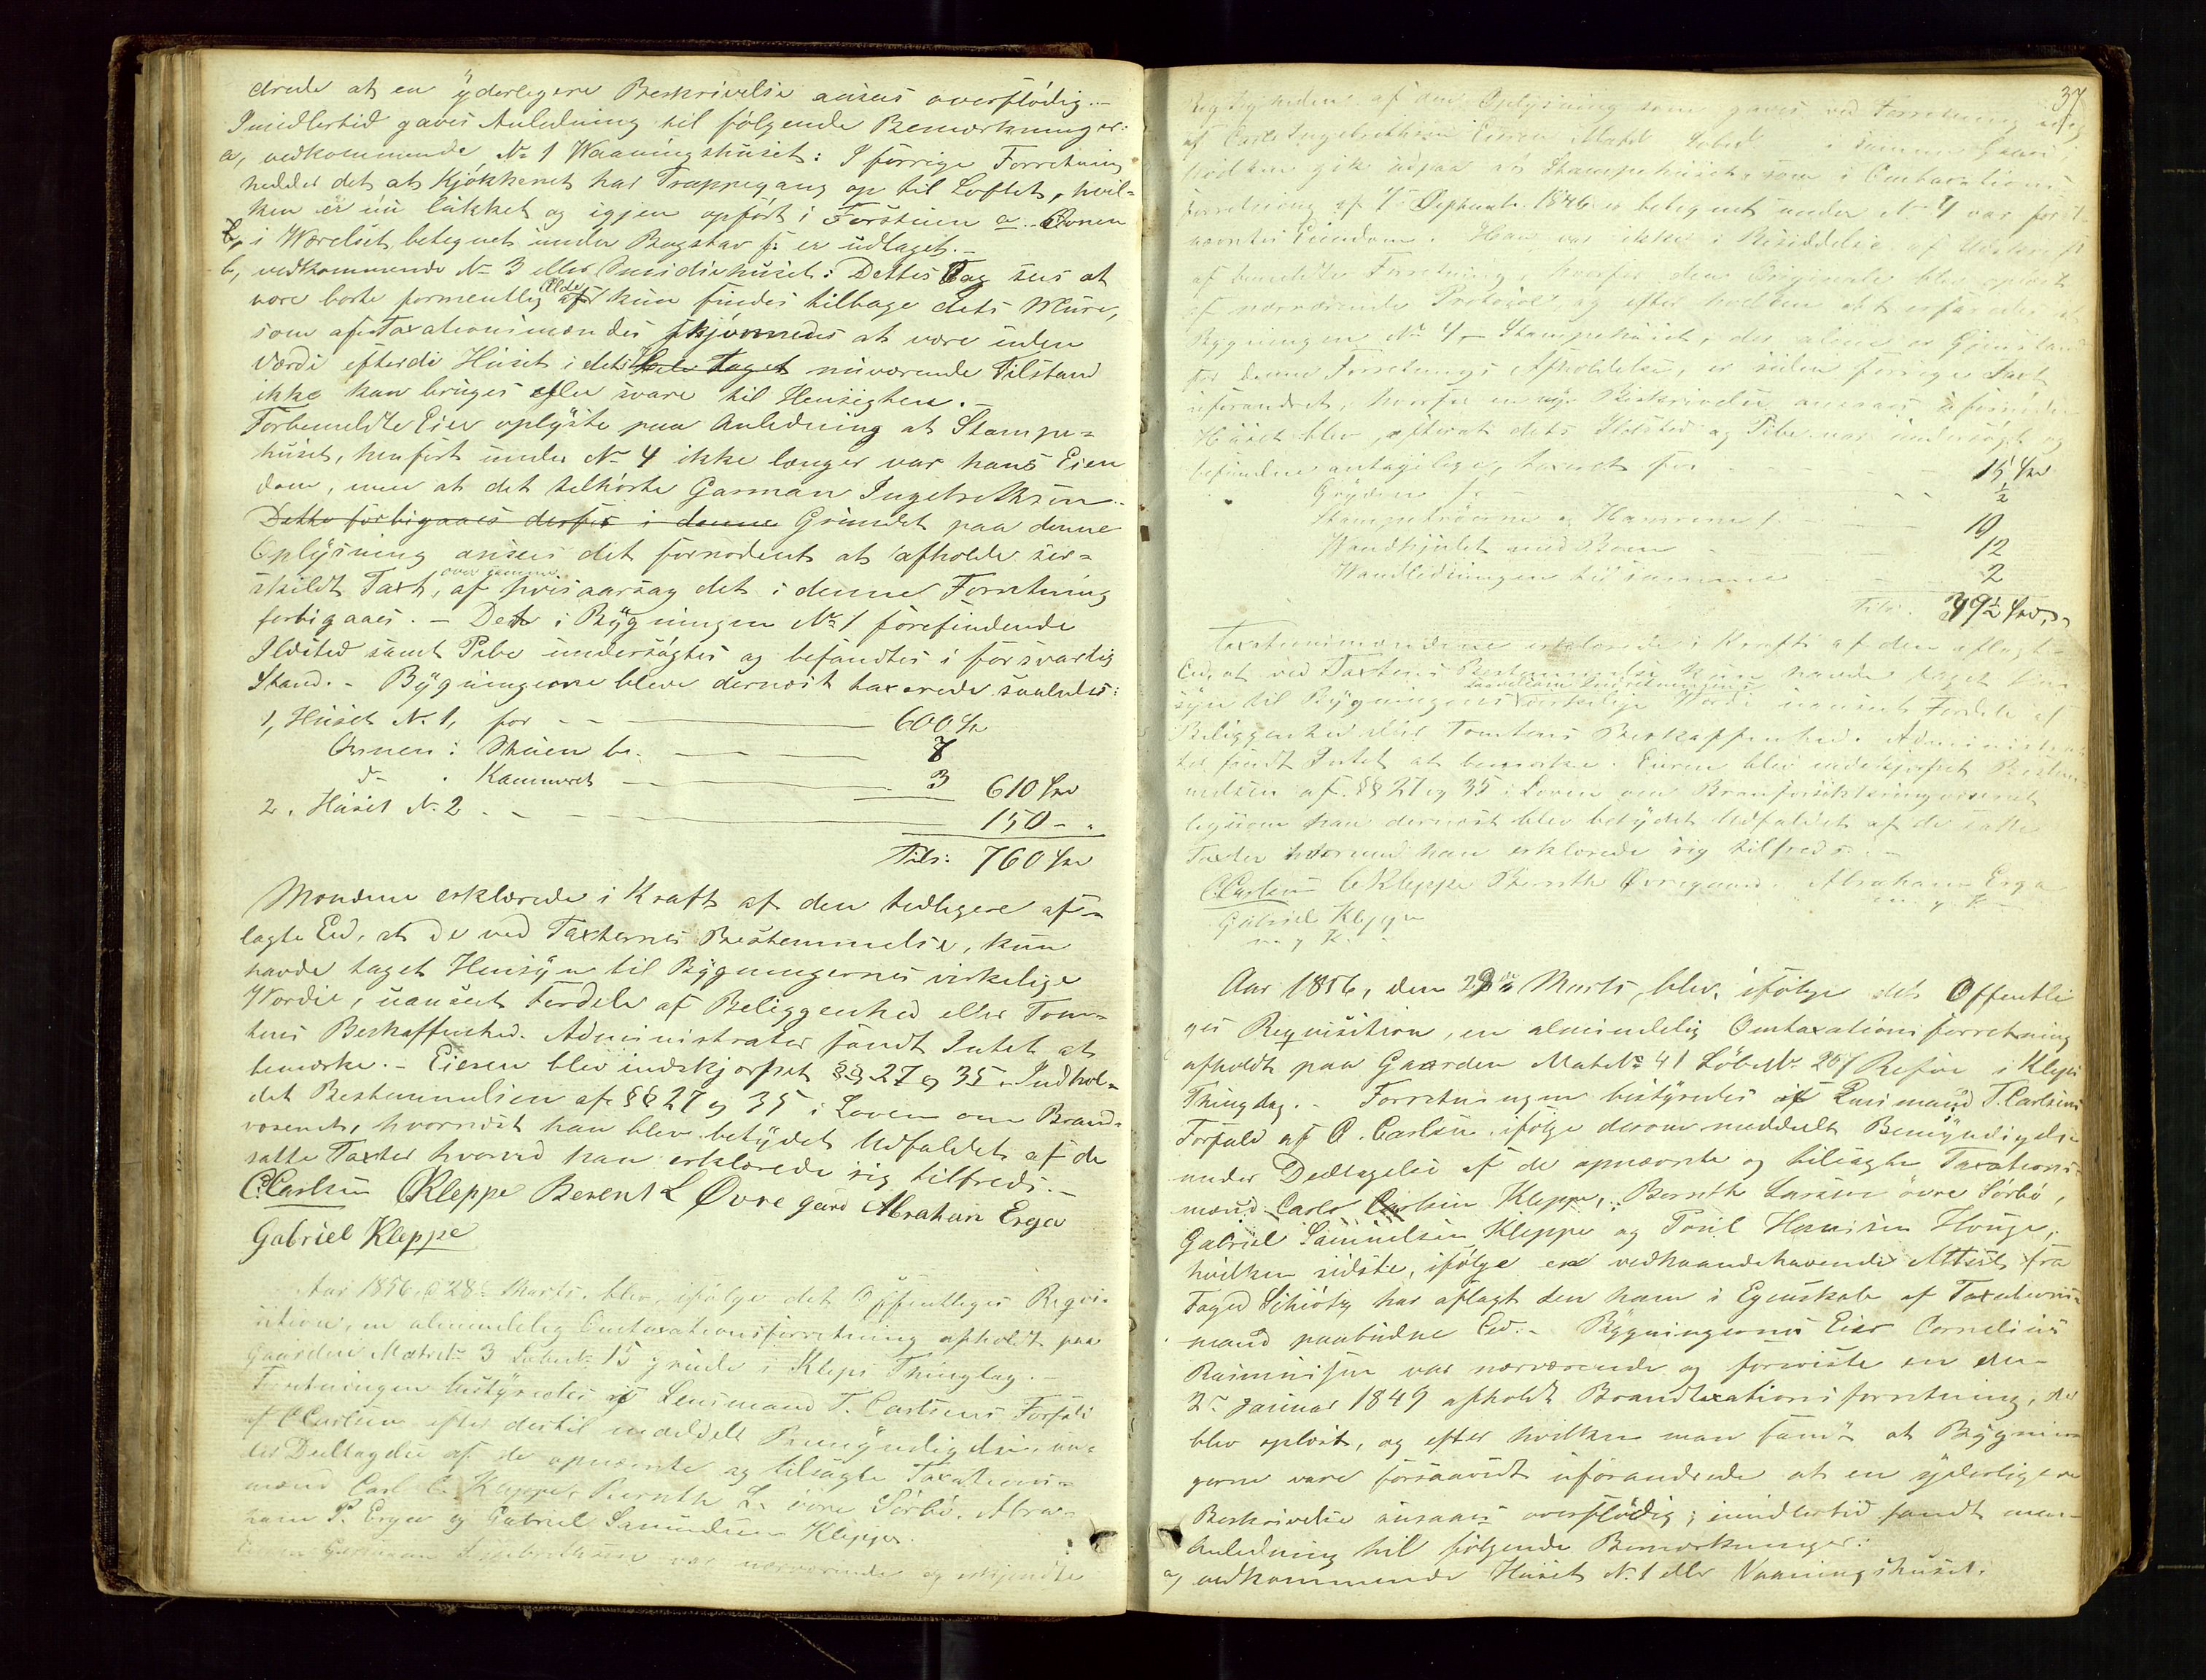 drede at en yderligere Beskrivelse ansees overflødig. –
Imidlertid gaves Anledning til følgende Bemærkninger:
a, vedkommende No 1 Waaningshuset: I forrige Forretning
hedder det at Kjøkkenet har Trappegang op til Loftet, hvil-
ken er nu lukket og igjen opført i Forstuen a. Ovnen
i Værelset betegnet under Bogstav f: er udtaget. –
b, vedkommende No 3 eller Smidiehuset: Dettes Tag sees at
være borte formentlig Ælde kun findes tilbage dets Mure,
som af Taxationsmændes skjønnedes at være uden
Værdi efterdi Huset i dets hele taget nuværende Tilstand
ikke kan bruges eller svare til Hensigten. –
Forbemeldte Eier oplyste paa Anledning at Stampe-
huset, henført under No 4 ikke længer var hans Eien
dom, men at det tilhørte Garman Ingebrethsen. –
Dette forbigaaes derfor i denne Grundet paa denne
Oplysning ansees det fornødent at afholde sær-
skildt Taxt, over samme af hvisaarsag det i denne Forretning
forbigaaes. – Det i Bygningen No 1 forefindende
Ildsted samt Pibe undersøgtes og befandtes i forsvarlig
Stand. – Bygningerne bleve dernæst taxerede saaledes:
1, Huset No 1, for – – 600 Spd
Ovnen i Stuen b. – 7
do . Kammeret – 3 610 Spd
2. Huset No 2 . – 150 – "
Tils: 760 Spd
Mændene erklærede i Kraft af den tidligere af-
lagte Eed, at de ved Taxternes Bestemmelse, kun
havde taget Hensyn til Bygningernes virkelige
Værdie, uanseet Fordele af Beliggenhed eller Tom-
tens Beskaffenhed. Administrator fandt Intet at
bemærke. – Eieren blev indskjærpet §§ 27 og 35. Indhol-
det Bestemmelsen af §§ 27 og 35 i Loven om Brand-
væsenet, hvornæst han blev betydet Udfaldet af de
satte Taxter hvorved han erklærede sig tilfreds. –
C. Carlsen CKleppe Berent L Øvregaard Abraham Erga
Gabriel Kleppe
Aar 1856, d 28de Marts, blev, ifølge det Offentliges Reqvi-
sition, en almindelig Omtaxationsforretning afholdt paa
Gaarden Matrno 3 Løbeno 15 Grude i Kleps Thinglag. –
Forretningen bestyredes i Lensmand T. Carlsens Forfald
af C Carlsen efter dertil meddelt Bemyndigelse, un-
der Deeltagelse af de opnævnte og tilsagte Taxations-
mænd Carl C. Kleppe, Bernth L. øvre Sørbø, Abra-
ham P. Erga og Gabriel Samuelsen Kleppe.
Garman Ingebrethsen var nærværende og
37
af den Oplysning som gaves ved Forretning
af Carl Ingebrethsen Eieren Løbno i samme Gaard
hvilken gik udpaa at Stampehuset, som i Omtaxations-
forretning af 1 Septembr 1846 er betegnet under No 4 var for-
nævntes Eiendom. Han var ikke i Besiddelse af Udskrift
af bemeldte Forretning, hvorfor den blev oplæst
af nærværende Protocol og efter hvilken det erfaredes at
Bygningen No 4, – Stampehuset, der alene er Gjenstand
for denne Forretnings Afholdelse, er siden forrige Taxt
uforandret, hvorfor en ny Beskrivelse ansaaes ufornøden
Huset blev, efterat dets Ildsted og Pibe var undersøgt og
befunden antagelige, taxeret for – – – 15 Spd
Gryden f: – – – ½
Stampetrøerne og Hamrene – – 10
Vandhjulet med Boen – – 12
Vandledningen til samme – – 2
Tils. 39½ Spd
Taxationsmændene erklærede i Kraft af den aflagte
Eed, at ved Taxtens Bestemmelse kun havde taget Hen-
syn til Bygningens virkelige Værdi uanseet Fordele af
Beliggenhed eller Tomtens Beskaffenhed. Administra-
tor fandt Intet at bemærke. Eieren blev indskjærpet Bestem-
melsen af §§ 27 og 35 i Loven om Brandforsikkringsvæsenet
ligesom han dernæst blev betydet Udfaldet af de satte
Taxter hvormed han erklærede sig tilfreds. –
C. Carlsen C Kleppe Bernth Øvregaard Abraham Erga
Gabriel Kleppe m. p. P.
m. p. P.
Aar 1856, den 29de Marts, blev, ifølge det Offentli
ges Reqvisition, en almindelig Omtaxationsforretning
afholdt paa Gaarden Matr No 41 Løbe No 257 Refve i Kleps
Thinglag. – Forretningen bestyredes i Lensmand T. Carlsens
Forfald af C. Carlsen ifølge derom meddelt Bemyndigelse
under Deeltagelse af de opnævnte og tilsagte Taxations-
mænd Carlo Carlsen Kleppe, Bernth Larsen øvre Sørbø,
Gabriel Samuelsen Kleppe og Poul Hansen Houge,
hvilken sidste, ifølge en vedhaandehavende Attest fra
Foged Schiøtz har aflagt den ham i Egenskab af Taxations-
mand paabudne Eed. – Bygningernes Eier Cornelius
Rasmussen var nærværende og foreviste en den
2den Januar 1849 afholdt Brandtaxationsforretning, der
blev oplæst, og efter hvilken man fandt at Bygnin-
gerne vare forsaavidt uforandrede at en yderligere
Beskrivelse ansaaes overflødig; imidlertid fandt man
Anledning til følgende Bemærkninger:
a, vedkommende Huset No 1 eller Vaaningshuset.